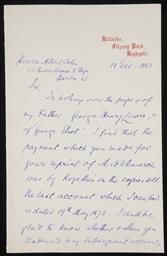 Hillside,
Fitzroy Park,
Highgate.
11 Dec: 1883
Messrs Albert Cohn
Berlin W
Sir,
In looking over the papers of
my Father, George Henry Lewes, &
of "George Eliot", I find that the
payment which you made for
your reprint of Middlemarch
was by Royalties on the copies sold.
The last account which I can find
is dated 19th May 1875. I shall be
glad to know whether & when you
rendered any subsequent account,